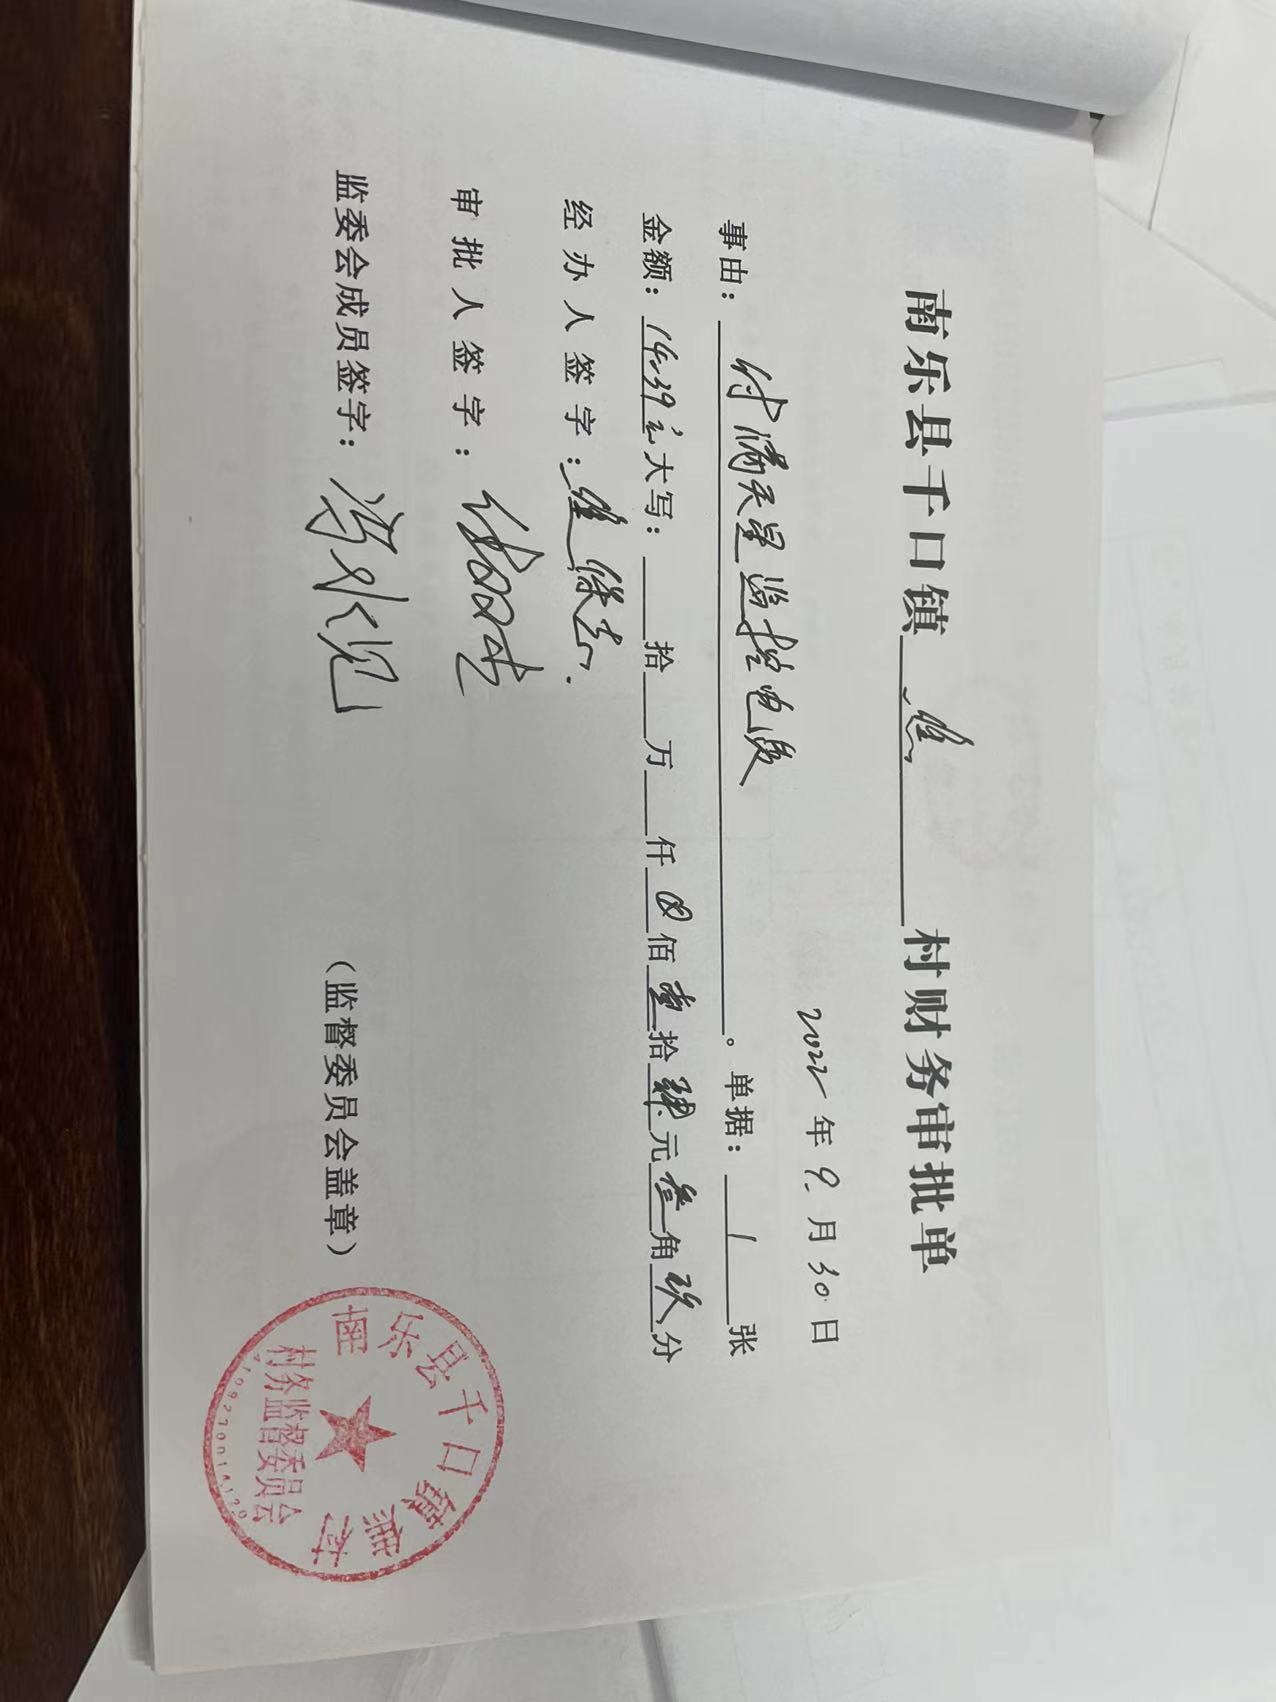 南乐县千口镇 村财务审批单
2022年9月30日
事由：付满天星监控电费。单据：1张
金额：19.39元大写： 拾 万 仟 ⊗佰 壹拾 玖元叁角玖分
经办人签字：
审批人签字：
监委会成员签字： （监督委员会盖章）
南乐县千口镇 村
村务监督委员会